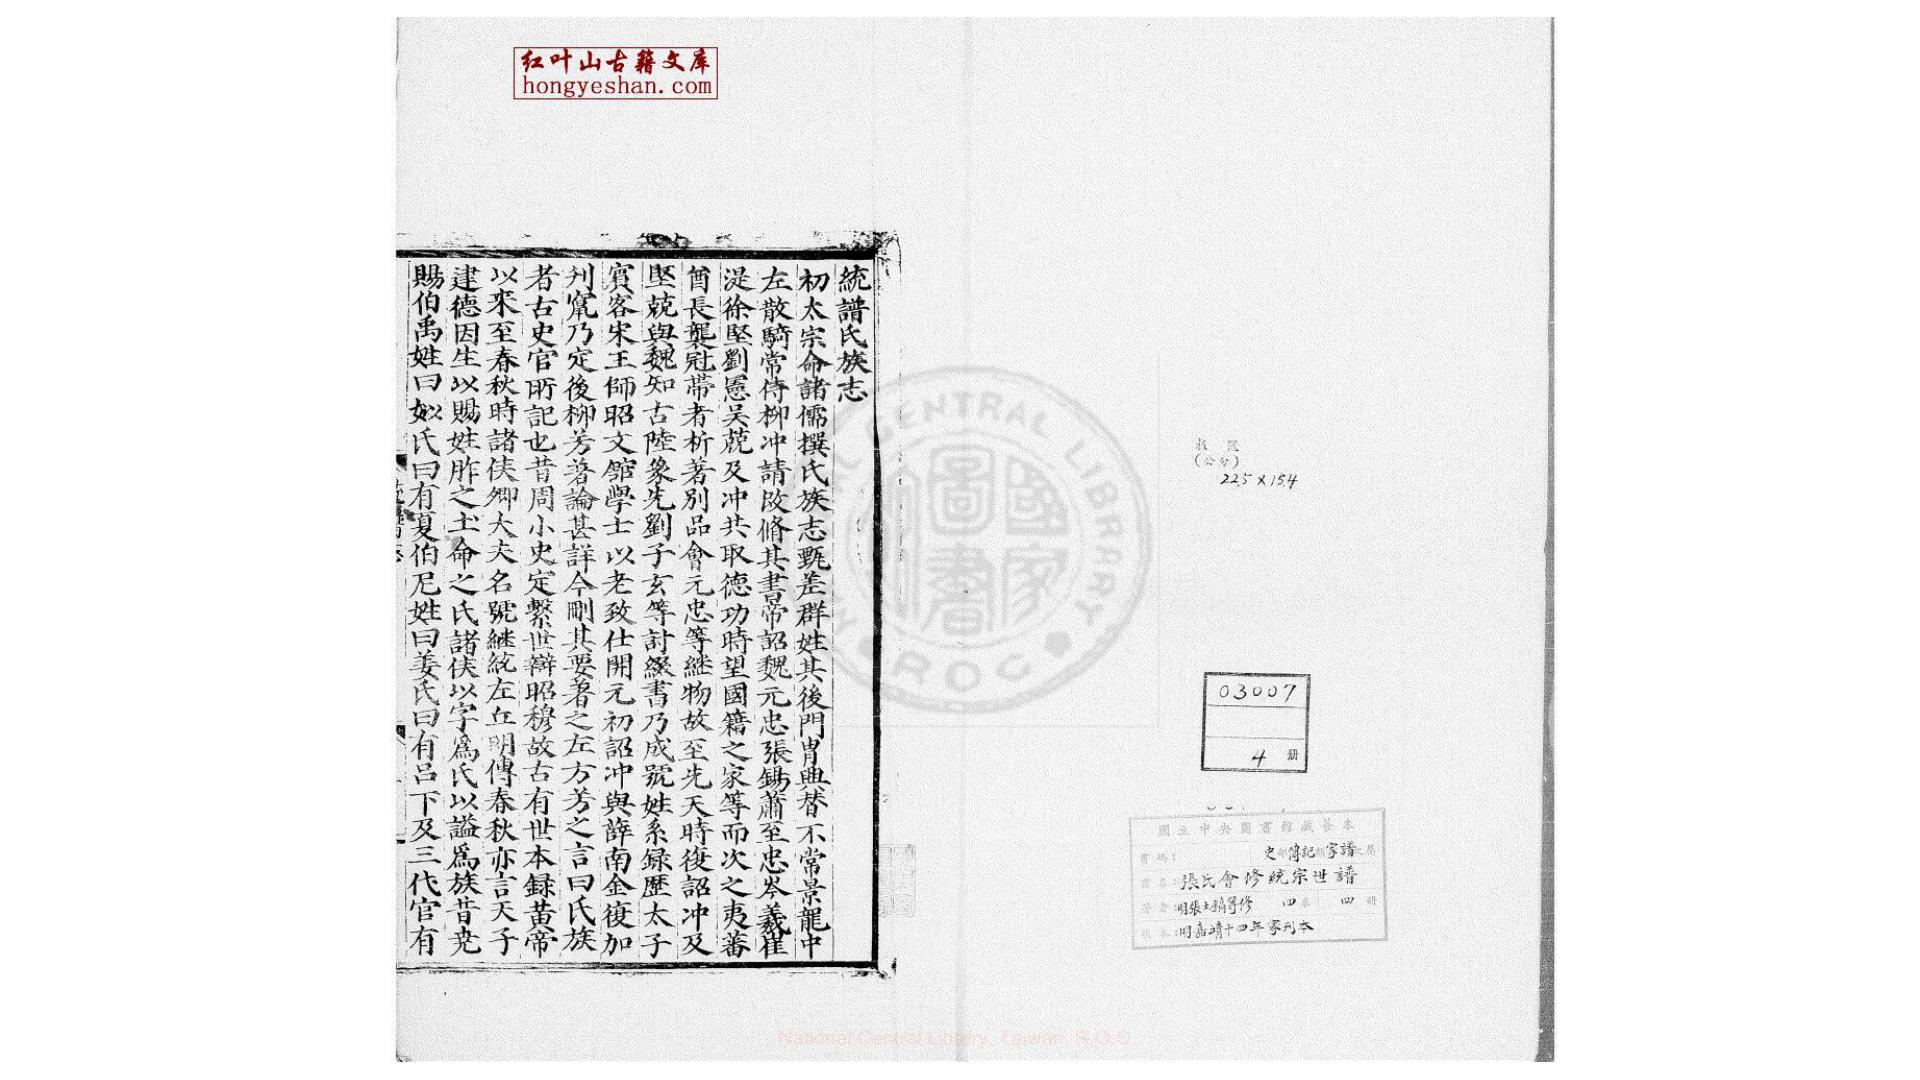 红叶山古籍文库
hongyeshan.com
統譜氏族志
初太宗命諸儒撰氏族志甄差群姓其後門胄興替不常景龍中
左散騎常侍柳冲請改脩其書帝詔魏元忠張錫蕭至忠岑羲崔
湜徐堅劉憲吴兢及冲共取德功時望國籍之家等而次之夷蕃
酋長襲冠帶者析著别品會元忠等継物故至先天時復詔冲及
堅兢與魏知古陸象先劉子玄等討綴書乃成號姓系録歷太子
賓客宋王師昭文館學士以老致仕開元初詔冲與薛南金復加
刋竄乃定後柳芳著論甚詳今刪其要著之左方芳之言曰氏族
者古史官所記也昔周小史定繫世辯昭穆故古有世本録黄帝
以來至春秋時諸侯卿大夫名號継統左丘明傳春秋亦言天子
建德因生以賜姓胙之土命之氏諸侯以字爲氏以謚爲族昔堯
賜伯禹姓曰姒氏曰有夏伯夷姓曰姜氏曰有吕下及三代官有
NATIONAL CENTRAL LIBRARY
ROC
國家圖書
(公分)
22.5 x 15.4
03007
4 册
國立中央圖書館藏善本
書碼: 史部傳記類家譜之屬
書名:張氏會修統宗世譜
四卷 四册
版本:明嘉靖十四年家刊本
National Central Library, Taiwan, R.O.C.